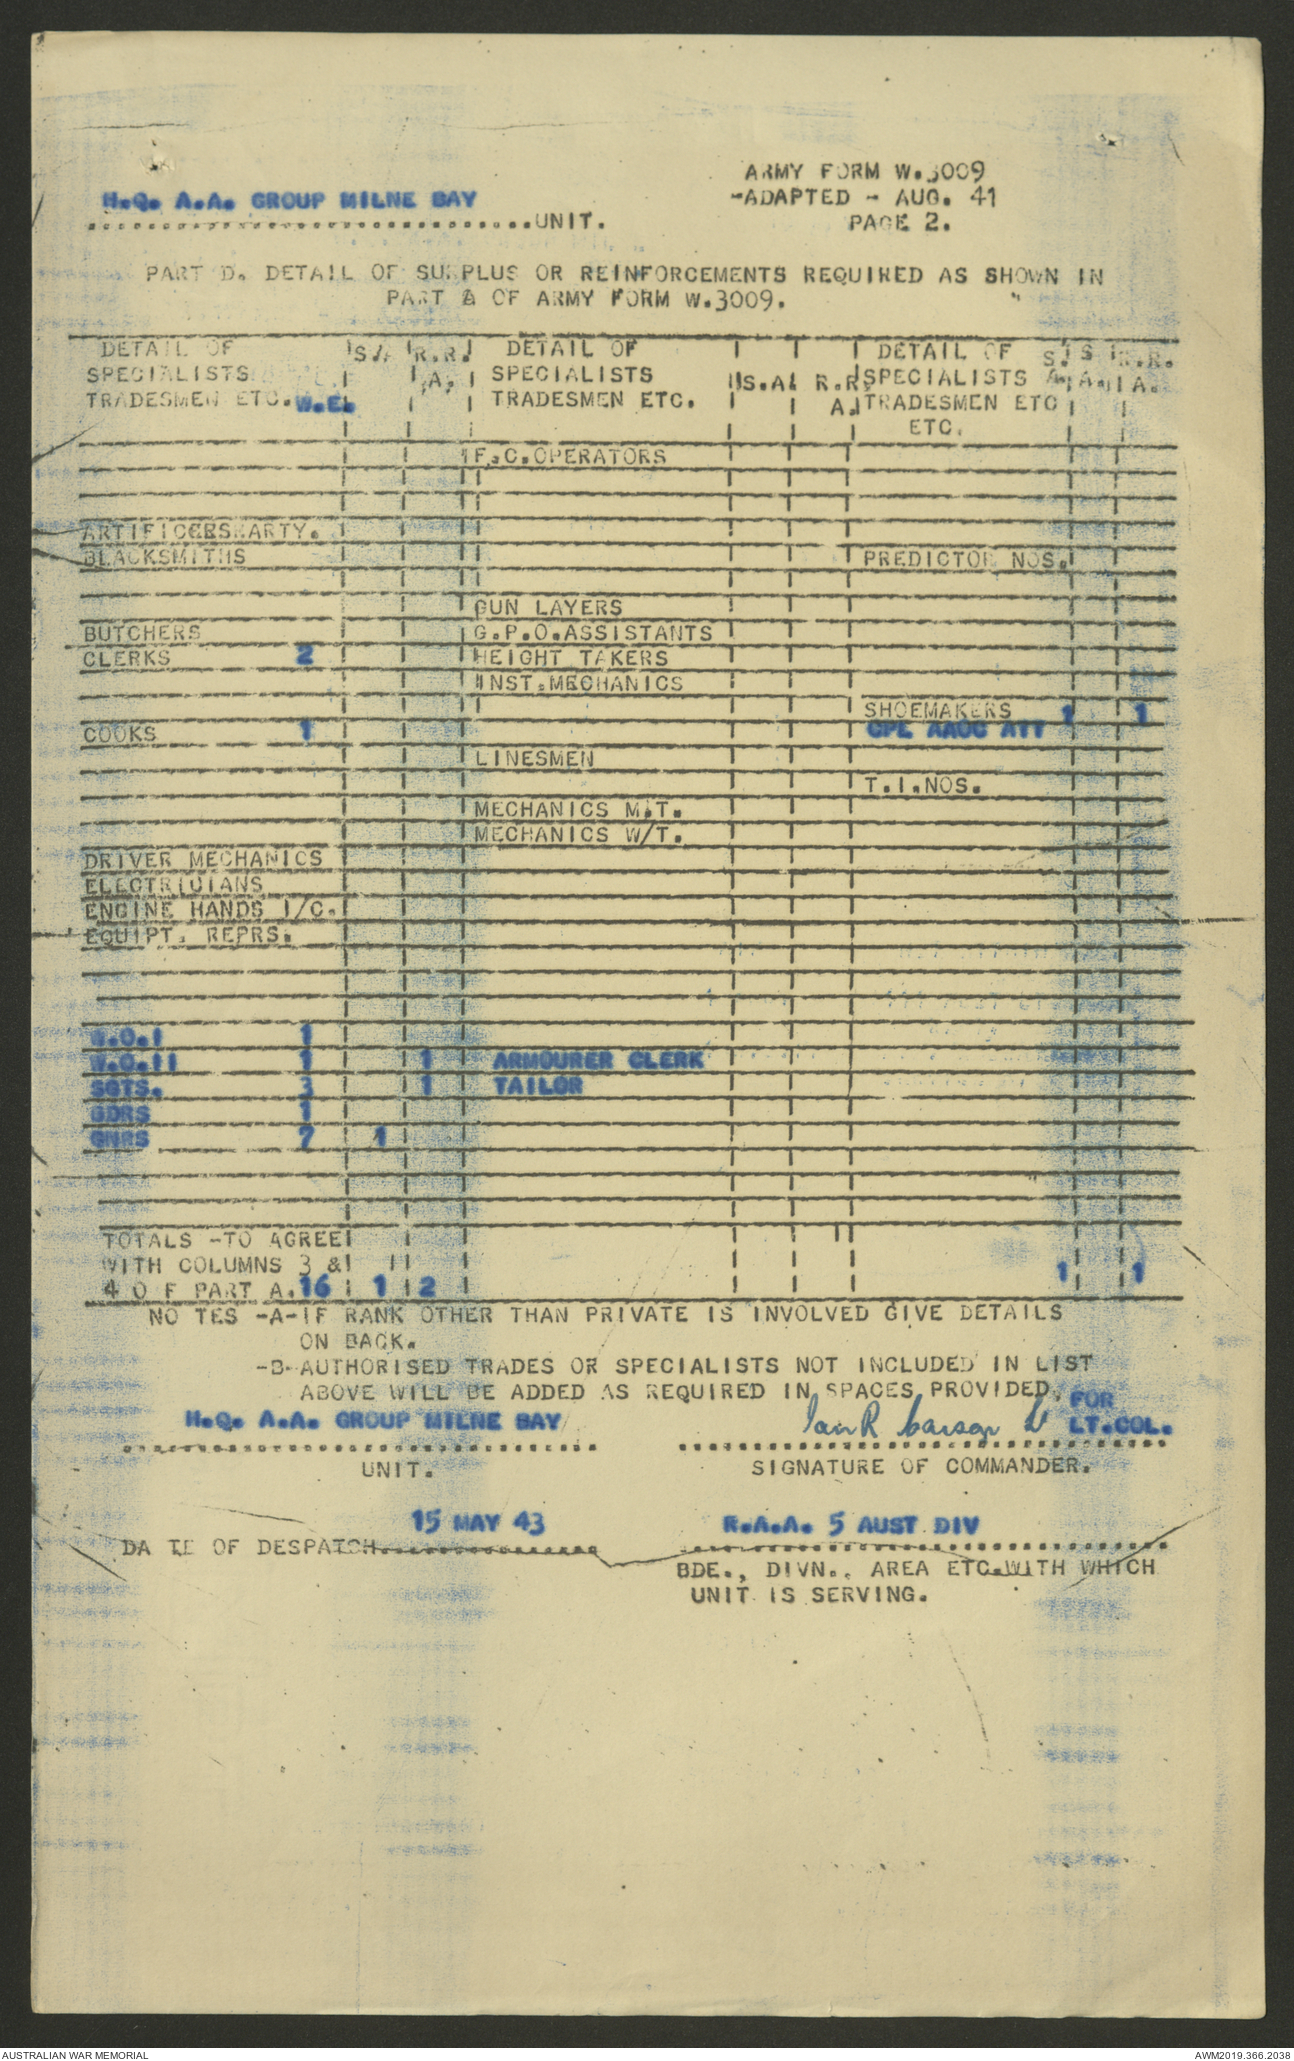 ARMY FORM W.3009
H.Q. A.A. GROUP MILNE BAY
-ADAPTED - AUG. 41
..............................UNIT.
PAGE 2.
PART D. DETAIL OF SURPLUS OR REINFORCEMENTS REQUIRED AS SHOWN IN
PART A OF ARMY FORM W.3009.
DETAIL OF S.A. R.R. DETAIL OF DETAIL OF S. S. R.R.
SPECIALISTS A. SPECIALISTS S.A. R.R. SPECIALISTS A. A. A.
TRADESMEN ETC. W.E. TRADESMEN ETC. A. TRADESMEN ETC
ETC.
F.C.OPERATORS
ARTIFICERS.ARTY.
BLACKSMITHS PREDICTOR NOS.
GUN LAYERS
BUTCHERS G.P.O.ASSISTANTS
CLERKS 2 HEIGHT TAKERS
INST.MECHANICS
SHOEMAKERS
COOKS 1 CPL AAOC ATT 1 1
LINESMEN
T.I.NOS.
MECHANICS M.T.
MECHANICS W/T.
DRIVER MECHANICS
ELECTRICIANS
ENGINE HANDS I/C.
EQUIPT. REPRS.
W.O.I 1
W.O.II 1 1 ARMOURER CLERK
SGTS. 3 1 TAILOR
BDRS 1
GNRS 7 1
TOTALS -TO AGREE
WITH COLUMNS 3 &
4 O F PART A. 16 1 2 1 1
NO TES -A-IF RANK OTHER THAN PRIVATE IS INVOLVED GIVE DETAILS
ON BACK.
-B-AUTHORISED TRADES OR SPECIALISTS NOT INCLUDED IN LIST
ABOVE WILL BE ADDED AS REQUIRED IN SPACES PROVIDED.
H.Q. A.A. GROUP MILNE BAY Ian R FOR
LT.COL.
UNIT. SIGNATURE OF COMMANDER.
15 MAY 43 R.A.A. 5 AUST DIV
DA TE OF DESPATCH....................
BDE., DIVN., AREA ETC.WITH WHICH
UNIT IS SERVING.
AUSTRALIAN WAR MEMORIAL AWM2019.366.2038